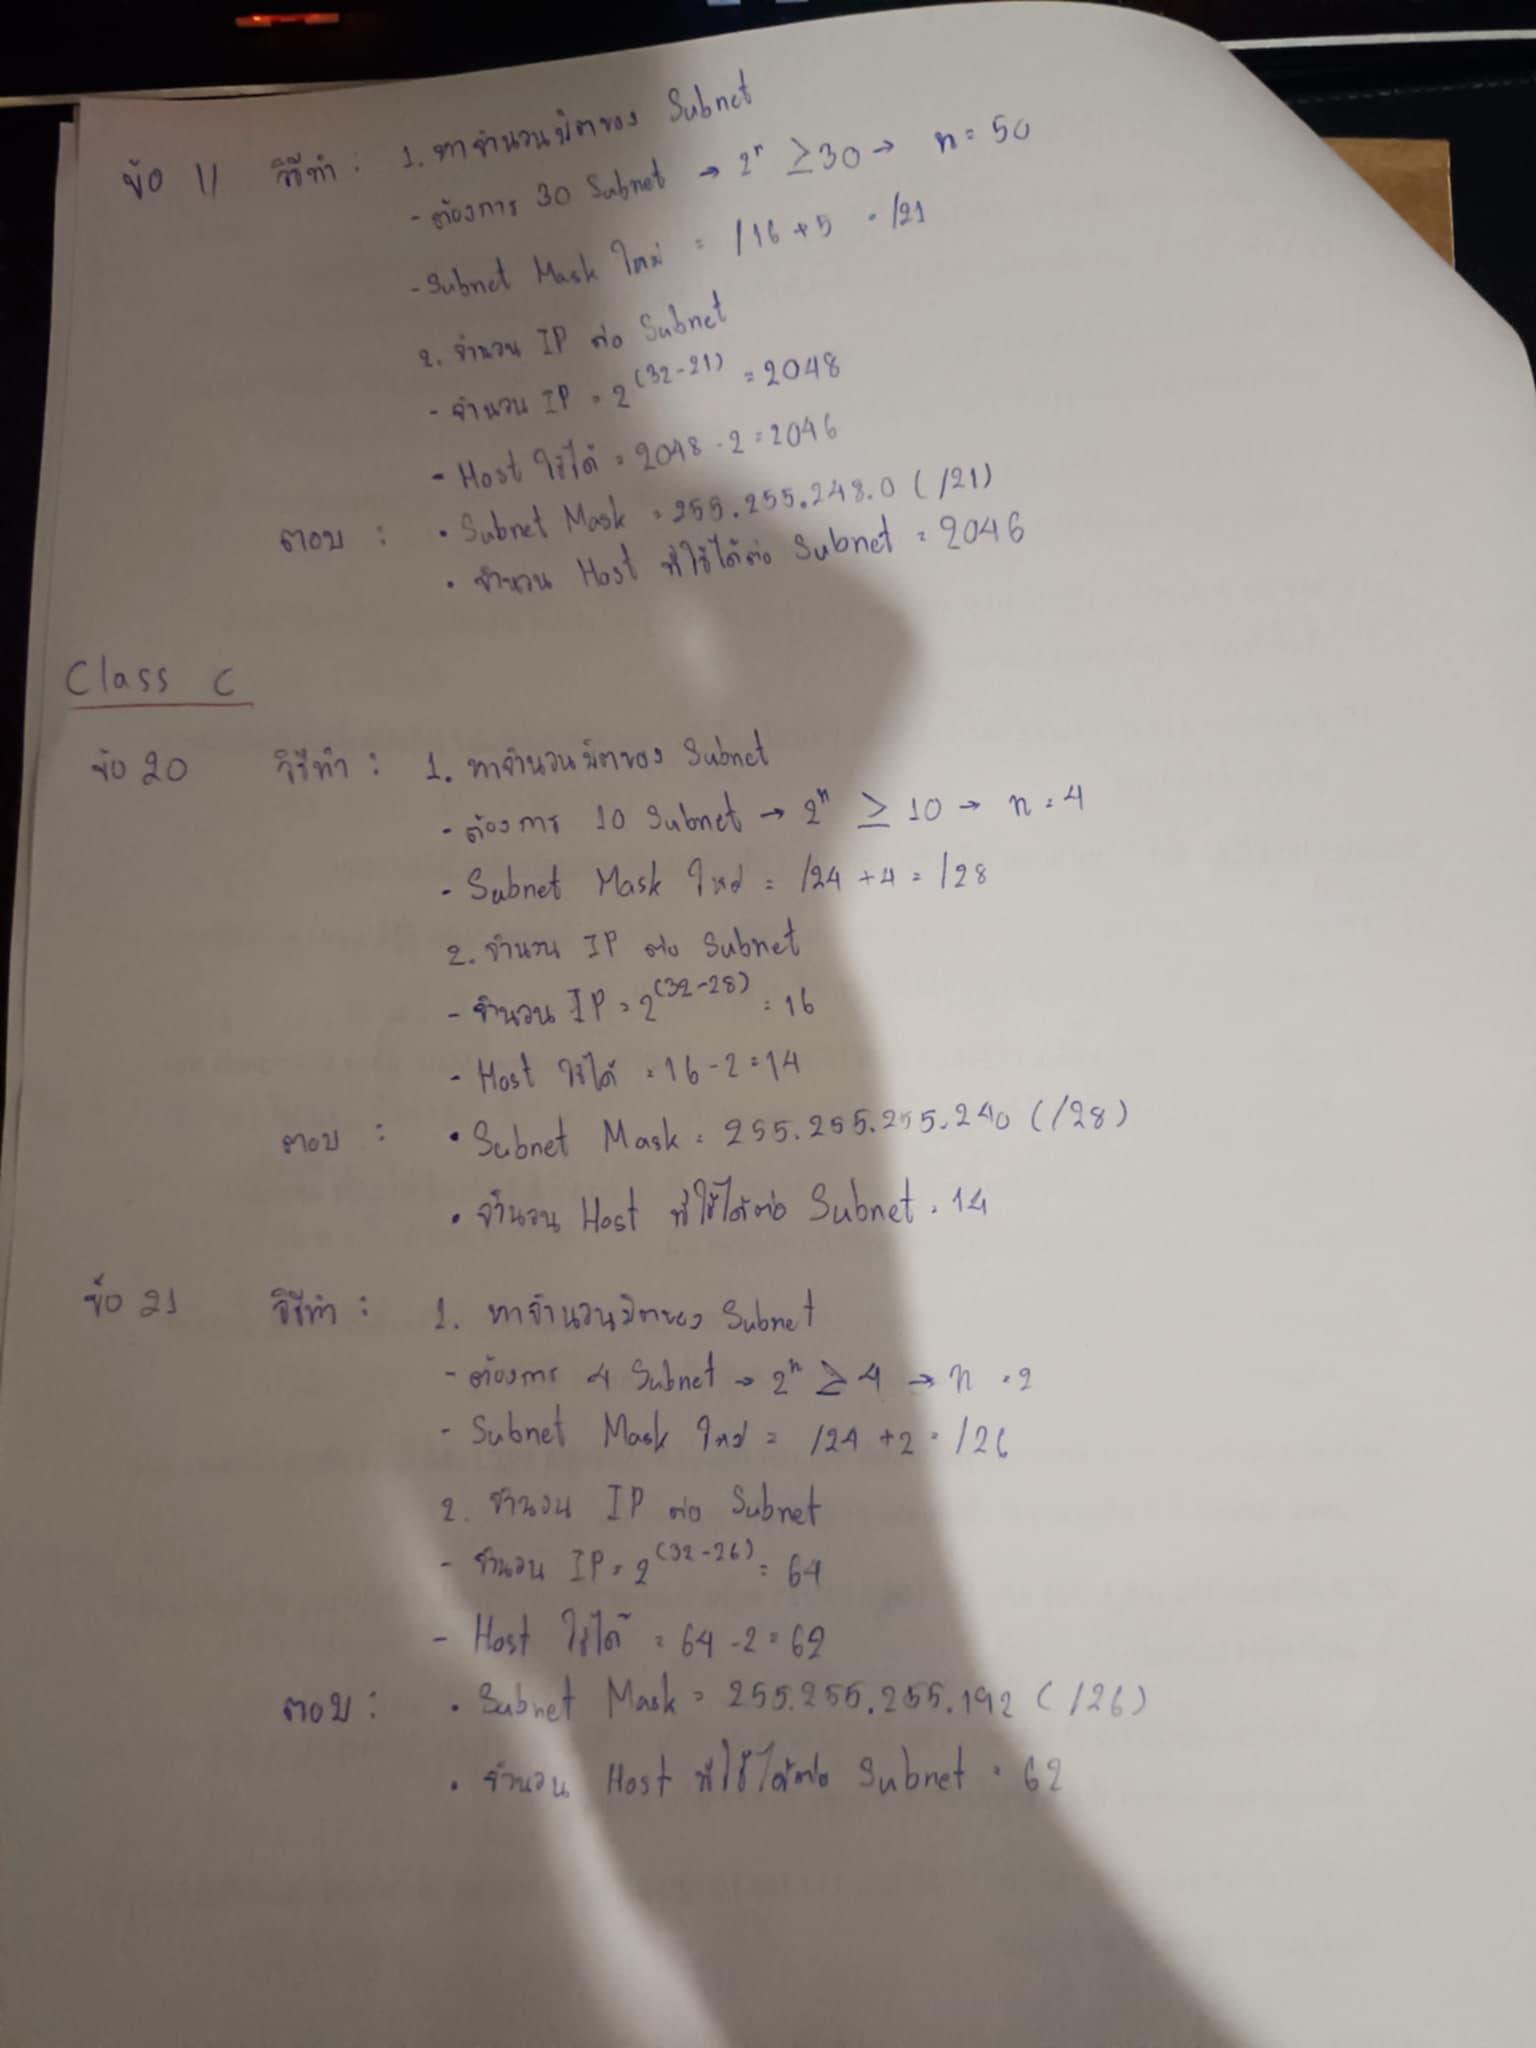 ข้อ 11 วิธีทำ : 1. หาจำนวนบิตของ Subnet
- ต้องการ 30 Subnet → 2ⁿ ≥ 30 → n = 50
- Subnet Mask ใหม่ = /16 + 5 = /21
2. จำนวน IP ต่อ Subnet
- จำนวน IP = 2^(32-21) = 2048
- Host ใช้ได้ = 2048 - 2 = 2046
ตอบ : • Subnet Mask = 255.255.248.0 (/21)
• จำนวน Host ที่ใช้ได้ต่อ Subnet = 2046
Class C
ข้อ 20 วิธีทำ : 1. หาจำนวนบิตของ Subnet
- ต้องการ 10 Subnet → 2ⁿ ≥ 10 → n = 4
- Subnet Mask ใหม่ = /24 + 4 = /28
2. จำนวน IP ต่อ Subnet
- จำนวน IP = 2^(32-28) = 16
- Host ใช้ได้ = 16 - 2 = 14
ตอบ : • Subnet Mask = 255.255.255.240 (/28)
• จำนวน Host ที่ใช้ได้ต่อ Subnet = 14
ข้อ 21 วิธีทำ : 1. หาจำนวนบิตของ Subnet
- ต้องการ 4 Subnet → 2ⁿ ≥ 4 → n = 2
- Subnet Mask ใหม่ = /24 + 2 = /26
2. จำนวน IP ต่อ Subnet
- จำนวน IP = 2^(32-26) = 64
- Host ใช้ได้ = 64 - 2 = 62
ตอบ : • Subnet Mask = 255.255.255.192 (/26)
• จำนวน Host ที่ใช้ได้ต่อ Subnet = 62